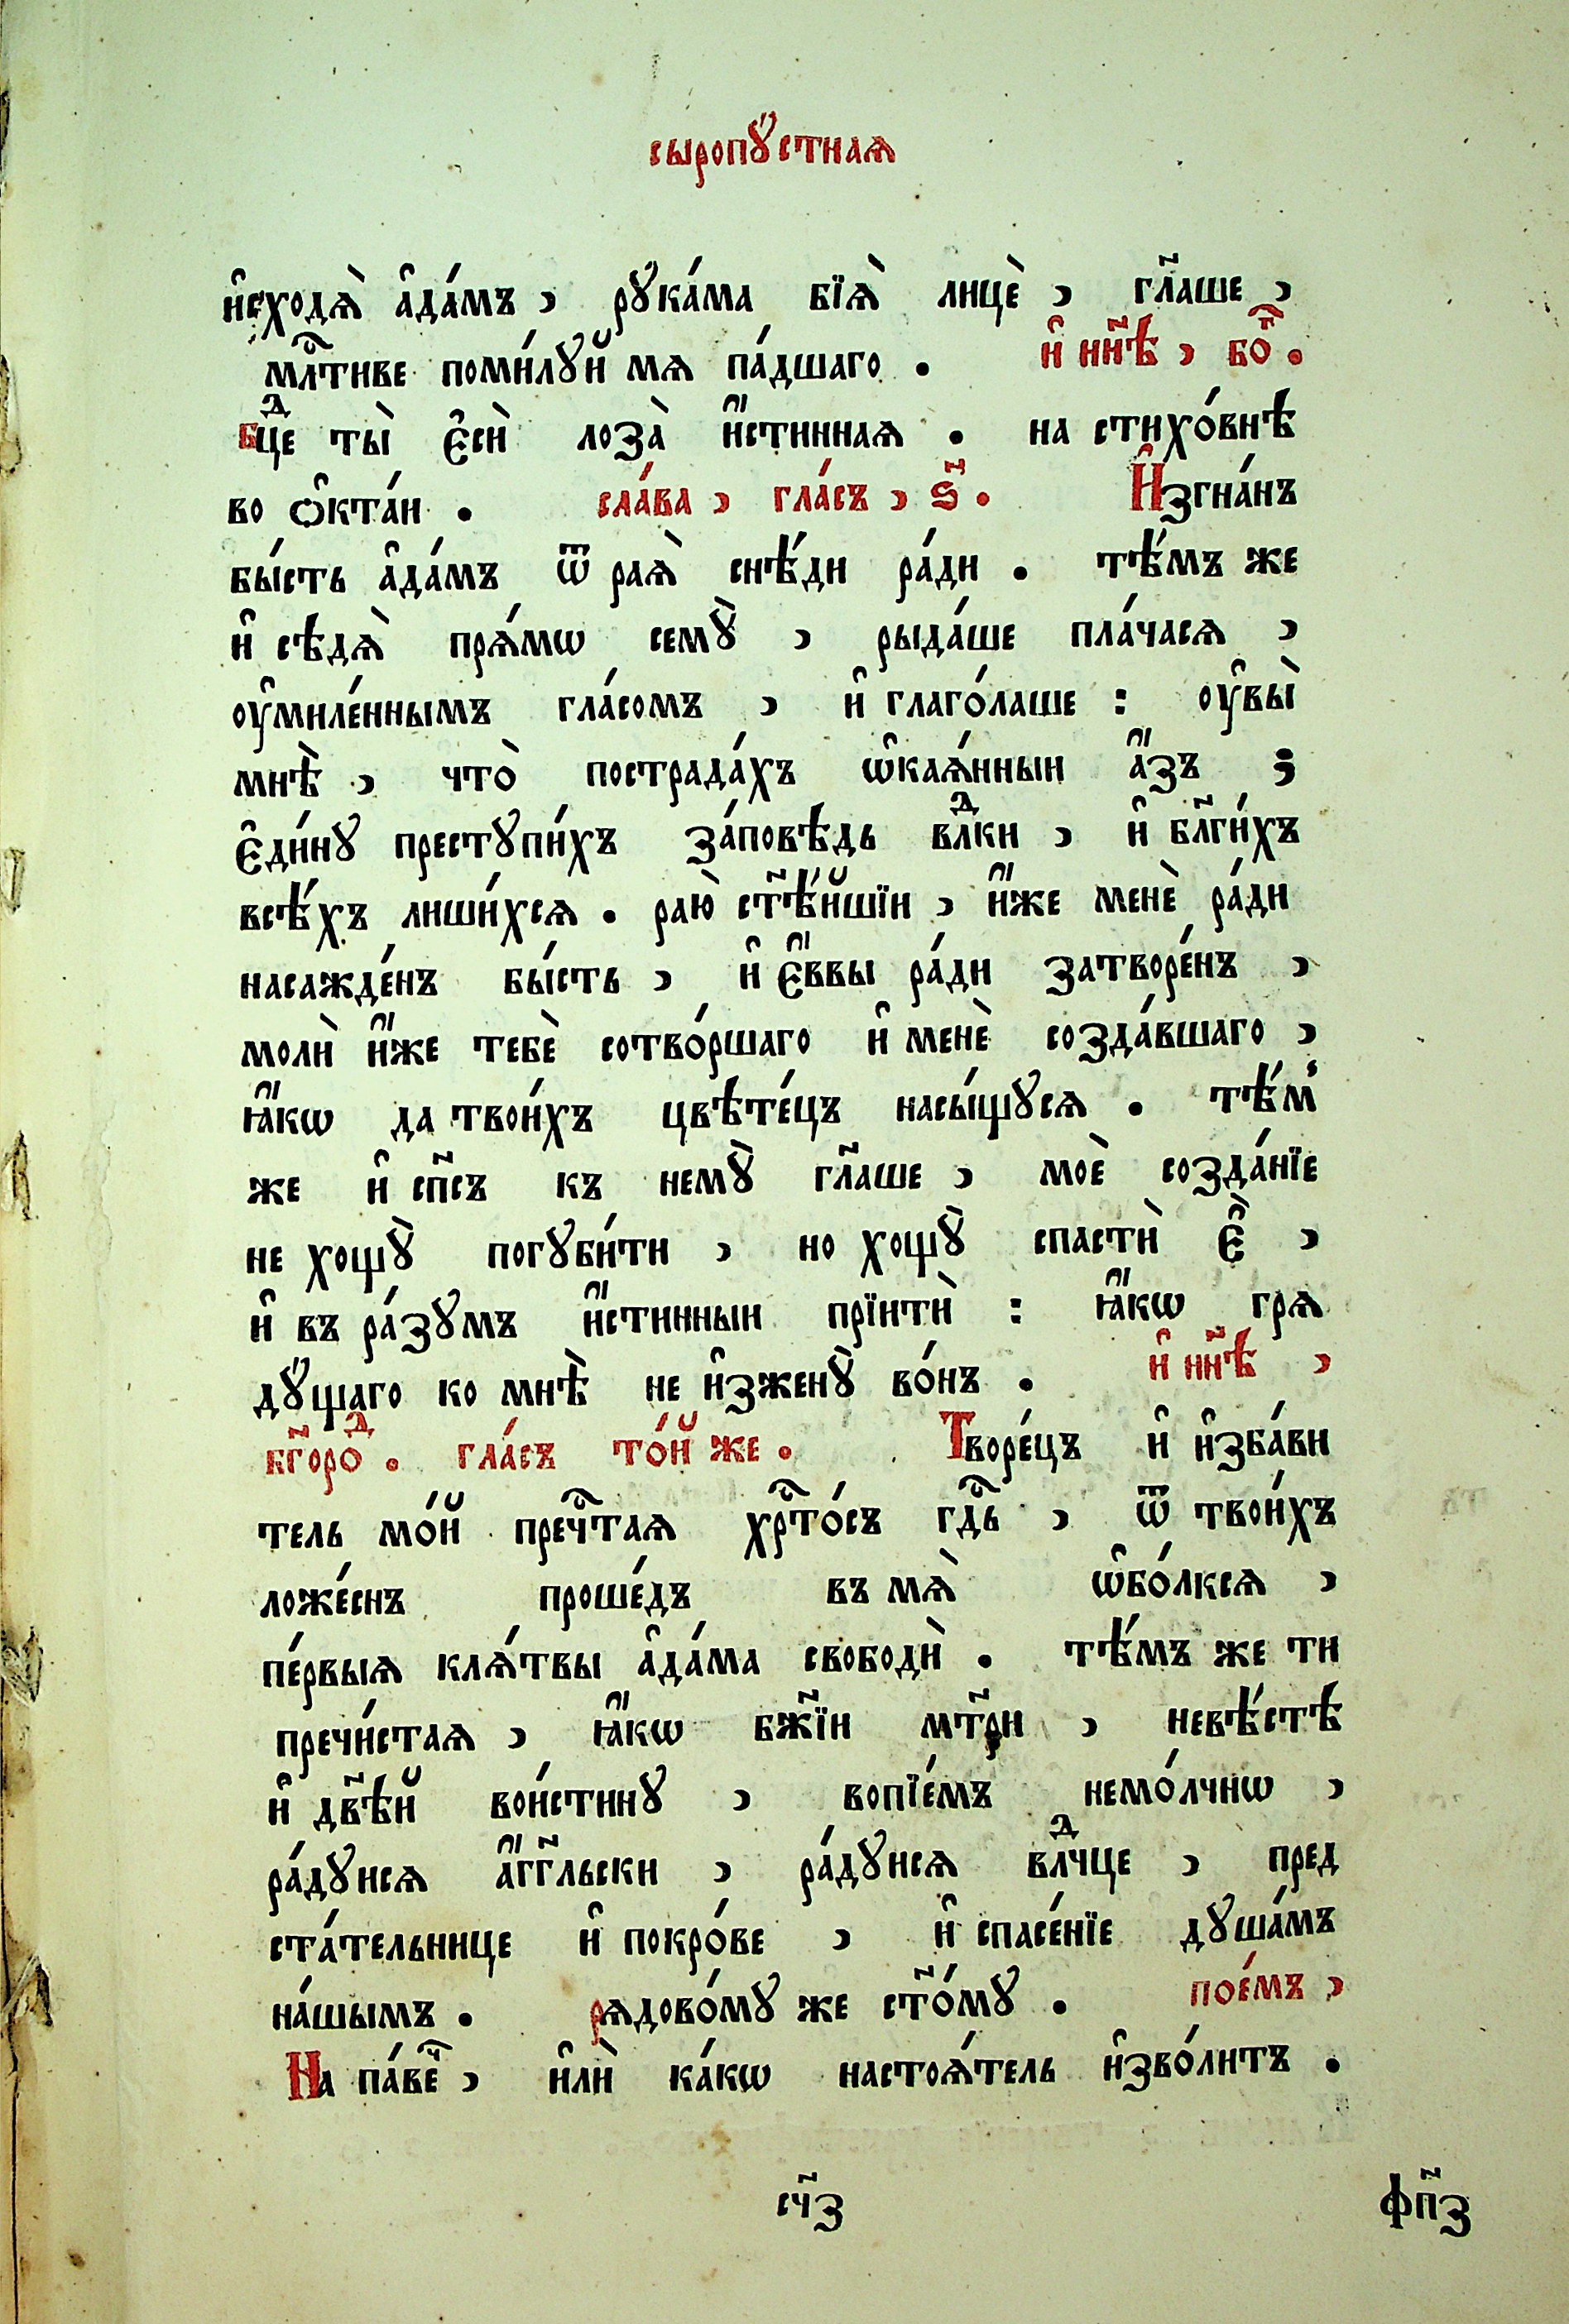 сыропꙋ́стнаѧ
и҆сходѧ̀ а҆да́мъ, рꙋка́ма бїѧ̀ лицѐ, гл҃аше,
млⷭ҇тиве поми́лꙋй мѧ па́дшаго. и҆ нн҃ѣ, боⷢ҇.
бцⷣе ты̀ є҆сѝ лоза̀ и҆́стиннаѧ. на стихо́внѣ
во ѻ҆кта́и. сла́ва, гла́съ, ѕ҃. И҆згна́нъ
бы́сть а҆да́мъ ѿ раѧ̀ снѣ́ди ра́ди. тѣ́мъ же
и҆ сѣдѧ̀ прѧ́мѡ семꙋ̀, рыда́ше пла́часѧ,
оу҆миле́ннымъ гла́сомъ, и҆ глаго́лаше: оу҆вы̀
мнѣ̀, что̀ пострада́хъ ѡ҆каѧ́нныи а҆́зъ;
є҆ди́нꙋ престꙋпи́хъ за́повѣдь влⷣки, и҆ бл҃ги́хъ
всѣ́хъ лиши́хсѧ. раю̀ ст҃ѣ́йшїи, и҆́же менѐ ра́ди
насажде́нъ бы́сть, и҆ є҆́ввы ра́ди затворе́нъ,
молѝ и҆́же тебѐ сотво́ршаго и҆ менѐ созда́вшаго,
ꙗ҆́кѡ да твои́хъ цвѣте́цъ насы́щꙋсѧ. тѣ́мꙿ
же и҆ сп҃съ къ немꙋ̀ гл҃аше, моѐ созда́нїе
не хощꙋ̀ погꙋби́ти, но хощꙋ̀ спастѝ є҆̀,
и҆ въ ра́зꙋмъ и҆́стинныи прїитѝ: ꙗ҆́кѡ грѧ
дꙋ́щаго ко мнѣ̀ не и҆зженꙋ̀ во́нъ. и҆ нн҃ѣ,
бг҃ороⷣ. гла́съ то́й же. Творе́цъ и҆ и҆зба́ви
тель мо́й пречⷭ҇таѧ хрⷭ҇то́съ гдⷭ҇ь, ѿ твои́хъ
ложе́снъ проше́дъ въ мѧ̀ ѡ҆бо́лксѧ,
пе́рвыѧ клѧ́твы а҆да́ма свободѝ. тѣ́мъ же ти
пречи́стаѧ, ꙗ҆́кѡ бж҃їи мт҃ри, невѣ́стѣ
и҆ дв҃ѣй вои́стинꙋ, вопїе́мъ немо́лчнѡ,
ра́дꙋисѧ а҆́гг҃льски, ра́дꙋисѧ влⷣчце, пред
ста́тельнице и҆ покро́ве, и҆ спасе́нїе дꙋша́мъ
на́шымъ. рѧдово́мꙋ же ст҃о́мꙋ. пое́мъ,
На па́веⷱ҇, и҆лѝ ка́кѡ настоѧ́тель и҆зво́литъ.
сч҃з фп҃з